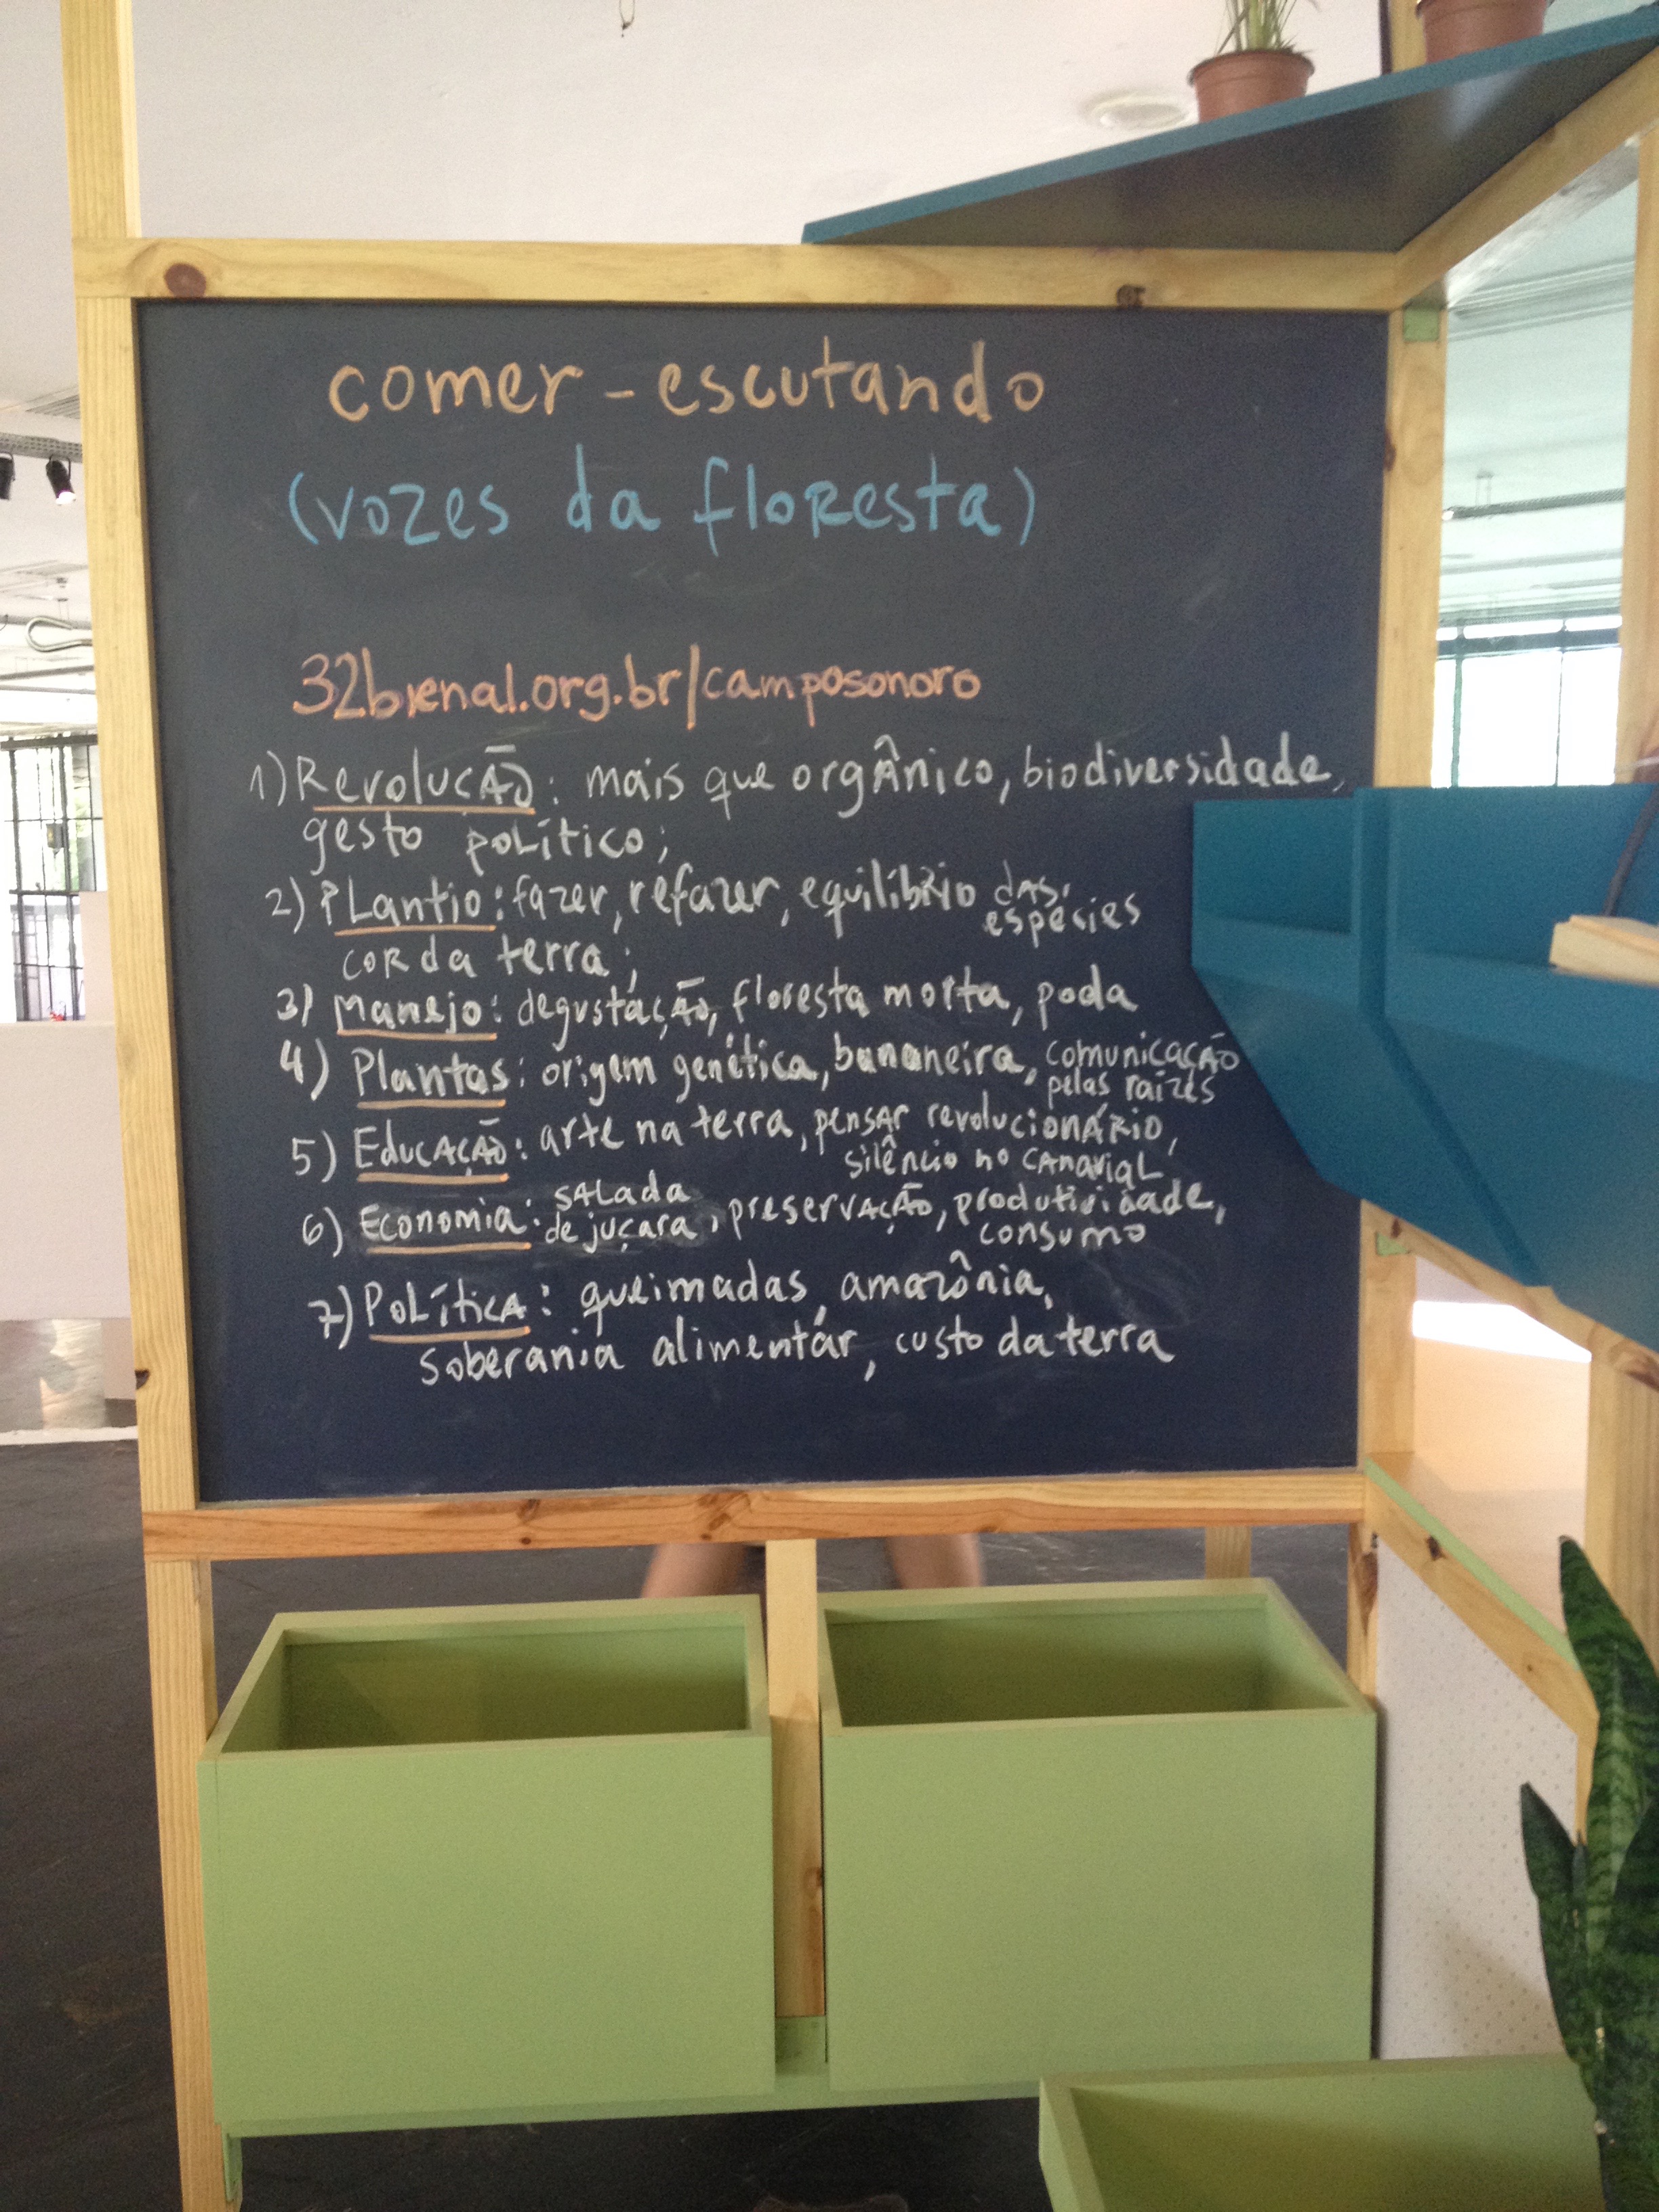 comer - escutando
(vozes da floresta)
32bienal.org.br/camposonoro
1) Revolução: mais que orgânico, biodiversidade,
gesto político;
2) Plantio: fazer, refazer, equilíbrio das
espécies
cor da terra;
3) Manejo: degustação, floresta morta, poda
4) Plantas: origem genética, bananeira, comunicação
pelas raízes
5) Educação: arte na terra, pensar revolucionário,
silêncio no canavial
6) Economia: salada
de juçara, preservação, produtividade,
consumo
7) Política: queimadas, amazônia,
soberania alimentar, custo da terra